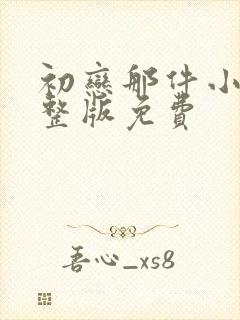 初戀那件小
整版免費
吾心_xs8